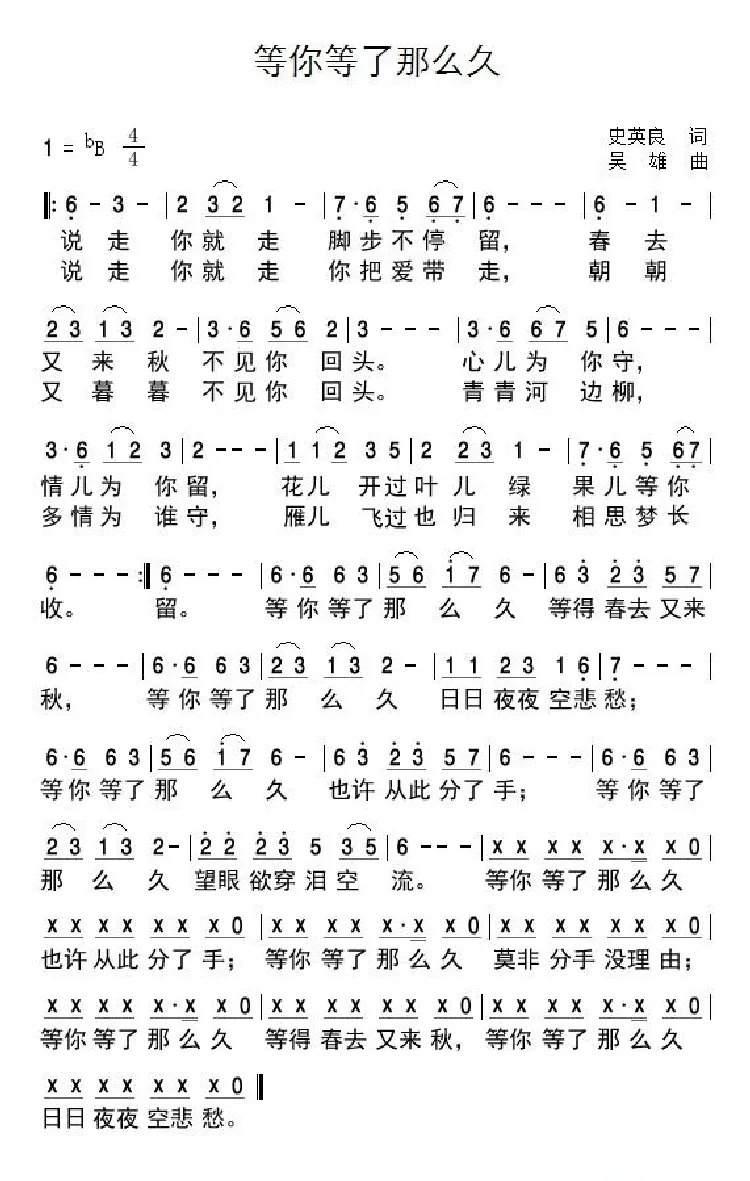 等你等了那么久
1 = ᵇB 4/4
史英良 词
吴 雄 曲
‖: 6 - 3 - | 2 3 2 1 - | 7 · 6 5 6 7 | 6 - - - | 6 - 1 - |
说 走 你 就 走 脚 步 不 停 留, 春 去
说 走 你 就 走 你 把 爱 带 走, 朝 朝
2 3 1 3 2 - | 3 · 6 5 6 2 | 3 - - - | 3 · 6 6 7 5 | 6 - - - |
又 来 秋 不 见 你 回 头。 心 儿 为 你 守,
又 暮 暮 不 见 你 回 头。 青 青 河 边 柳,
3 · 6 1 2 3 | 2 - - - | 1 1 2 3 5 | 2 2 3 1 - | 7 · 6 5 6 7 |
情 儿 为 你 留, 花 儿 开 过 叶 儿 绿 果 儿 等 你
多 情 为 谁 守, 雁 儿 飞 过 也 归 来 相 思 梦 长
6 - - - :‖ 6 - - - | 6 · 6 6 3 | 5 6 1 7 6 - | 6 3 2 3 5 7 |
收。 留。 等 你 等 了 那 么 久 等得 春去 又来
6 - - - | 6 · 6 6 3 | 2 3 1 3 2 - | 1 1 2 3 1 6 | 7 - - - |
秋, 等 你 等了 那 么 久 日日 夜夜 空悲 愁;
6 · 6 6 3 | 5 6 1 7 6 - | 6 3 2 3 5 7 | 6 - - - | 6 · 6 6 3 |
等 你 等了 那 么 久 也许 从此 分了 手; 等 你 等了
2 3 1 3 2 - | 2 2 2 3 5 3 5 | 6 - - - | x x x x x · x x 0 |
那 么 久 望眼 欲穿 泪 空 流。 等你 等了 那 么 久
x x x x x x x 0 | x x x x x · x x 0 | x x x x x x x 0 |
也许 从此 分了 手; 等你 等了 那 么 久 莫非 分手 没理 由;
x x x x x · x x 0 | x x x x x x x 0 | x x x x x · x x 0 |
等你 等了 那 么 久 等得 春去 又来 秋, 等你 等了 那 么 久
x x x x x x x 0 ‖
日日 夜夜 空悲 愁。